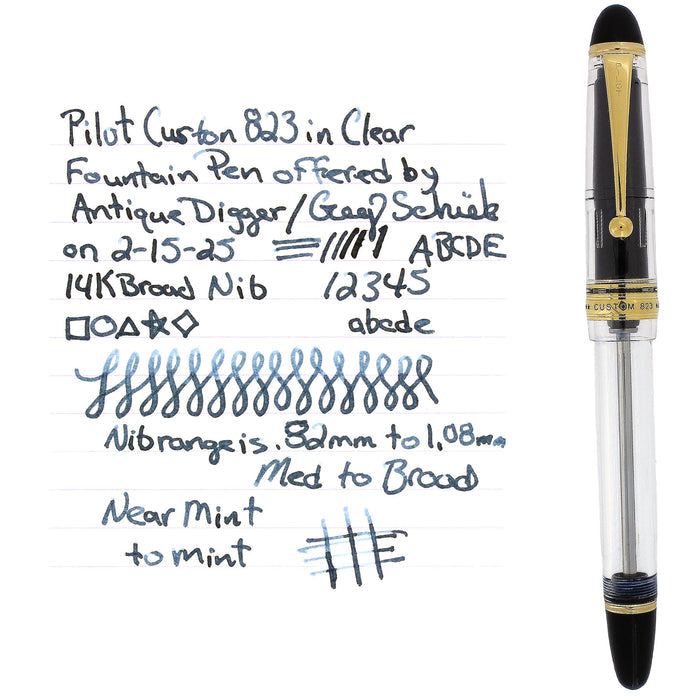 Pilot Custon 823 in Clear
Fountain Pen offered by
Antique Digger/
on 2-15-25 ABCDE
14K Broad Nib 12345
abcde
Nib range is .82mm to 1.08mm
Med to Broad
Near Mint
to mint
PILOT
CUSTOM 823